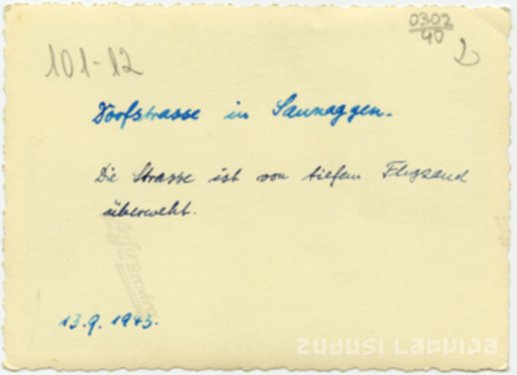 0302
40
2
101-12
Dorfstrasse in Saunaggen.
Die Strasse ist von tiefem Flugsand
überweht.
13.9.1943.
zudusi Latvija